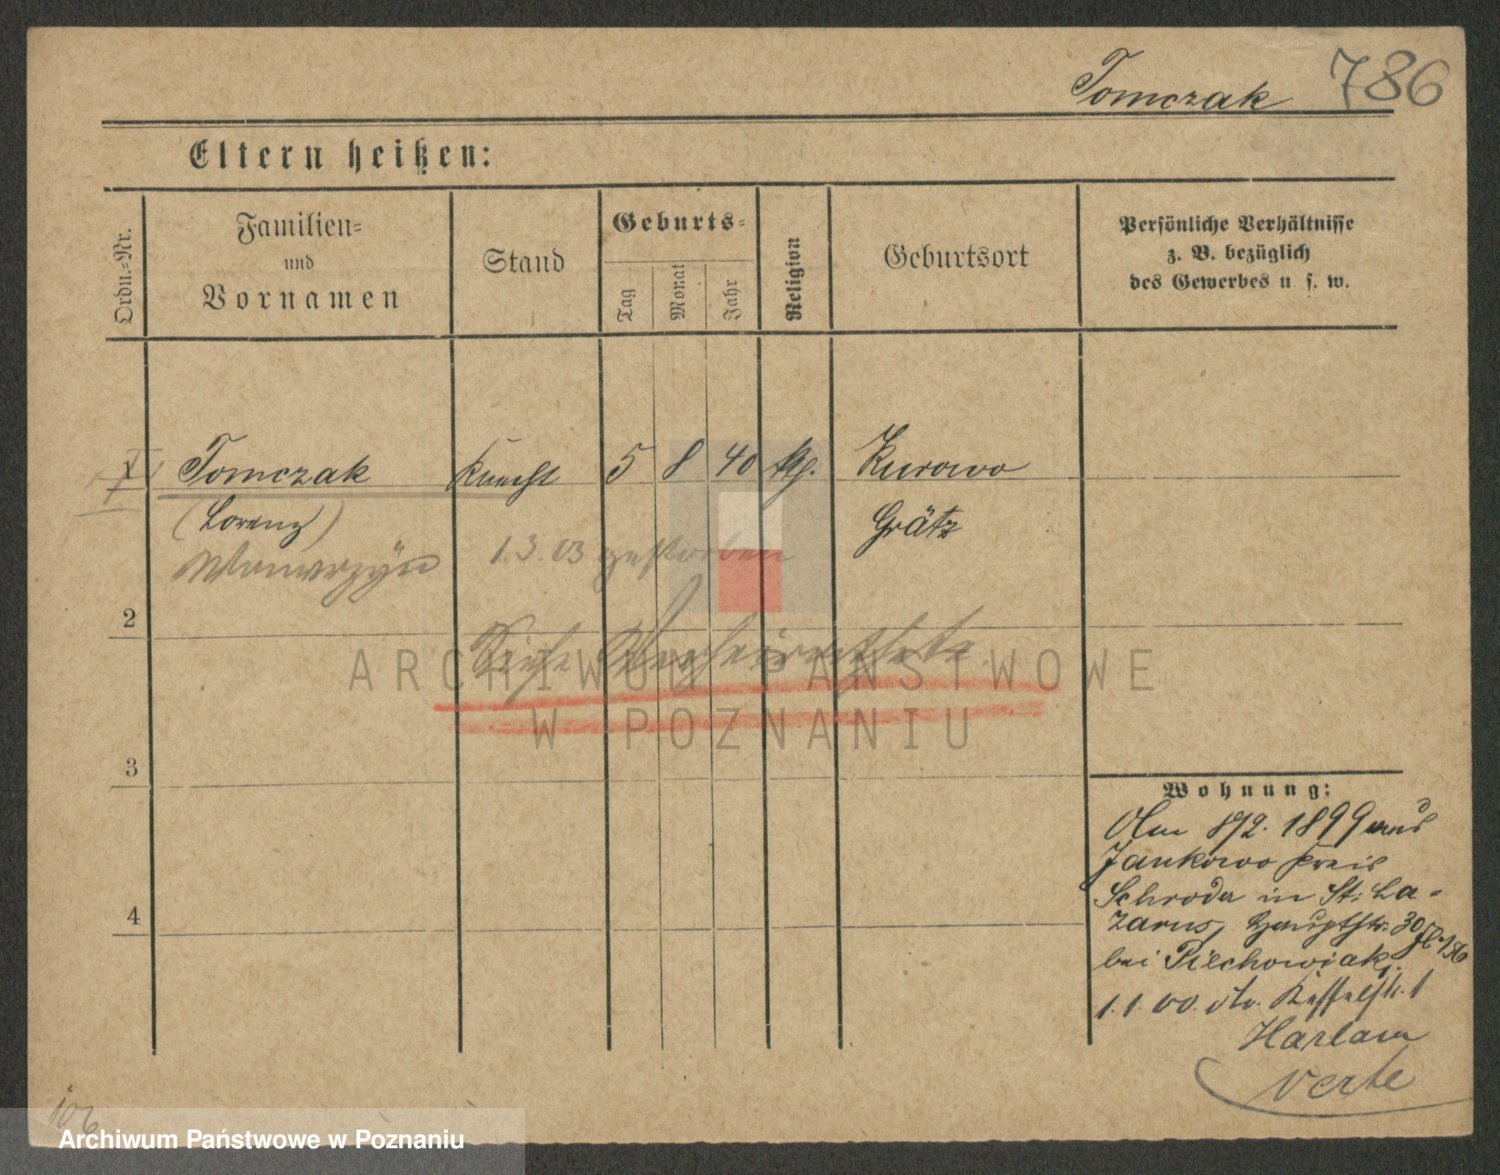 Tomczak 786
Eltern heißen:
Ordn.-Nr.
Familien-
und
Vornamen
Stand
Geburts-
Tag
Monat
Jahr
Religion
Geburtsort
Persönliche Verhältnisse
z. B. bezüglich
des Gewerbes u. s. w.
Tomczak Knecht 5 8 40 Kurowo
(Lorenz) Grätz
Wawrzyn 1.3.03 gestorben
2
Siehe
ARCHIWUM PAŃSTWOWE
W POZNANIU
3
4
Wohnung:
Am 8/2. 1899 aus
Jankowo Kreis
Schroda in St: La-
zarus, Hauptstr. 30
bei Piechowiak.
1.1.00. Kesselstr. 1
Harlam
verte
106
Archiwum Państwowe w Poznaniu